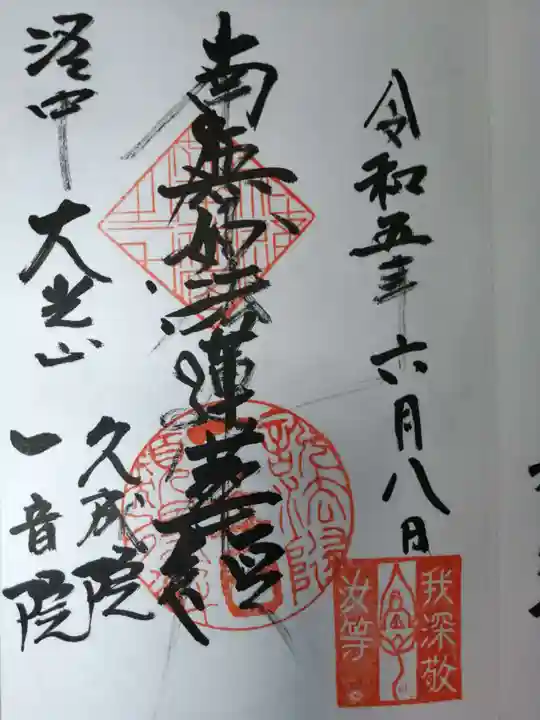 令和五年六月八日
南無妙法蓮華経
洛中 大光山
久成院
一音院
我深敬
汝等